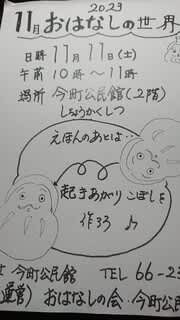 2023
11月 おはなしの世界
日時 11月11日(土)
午前 10時〜11時
場所 今町公民館(2階)
しちょうかくしつ
えほんのあとは…
起きあがりこぼしを
作ろう♪
今町公民館 TEL 66-23
運営) おはなしの会・今町公民